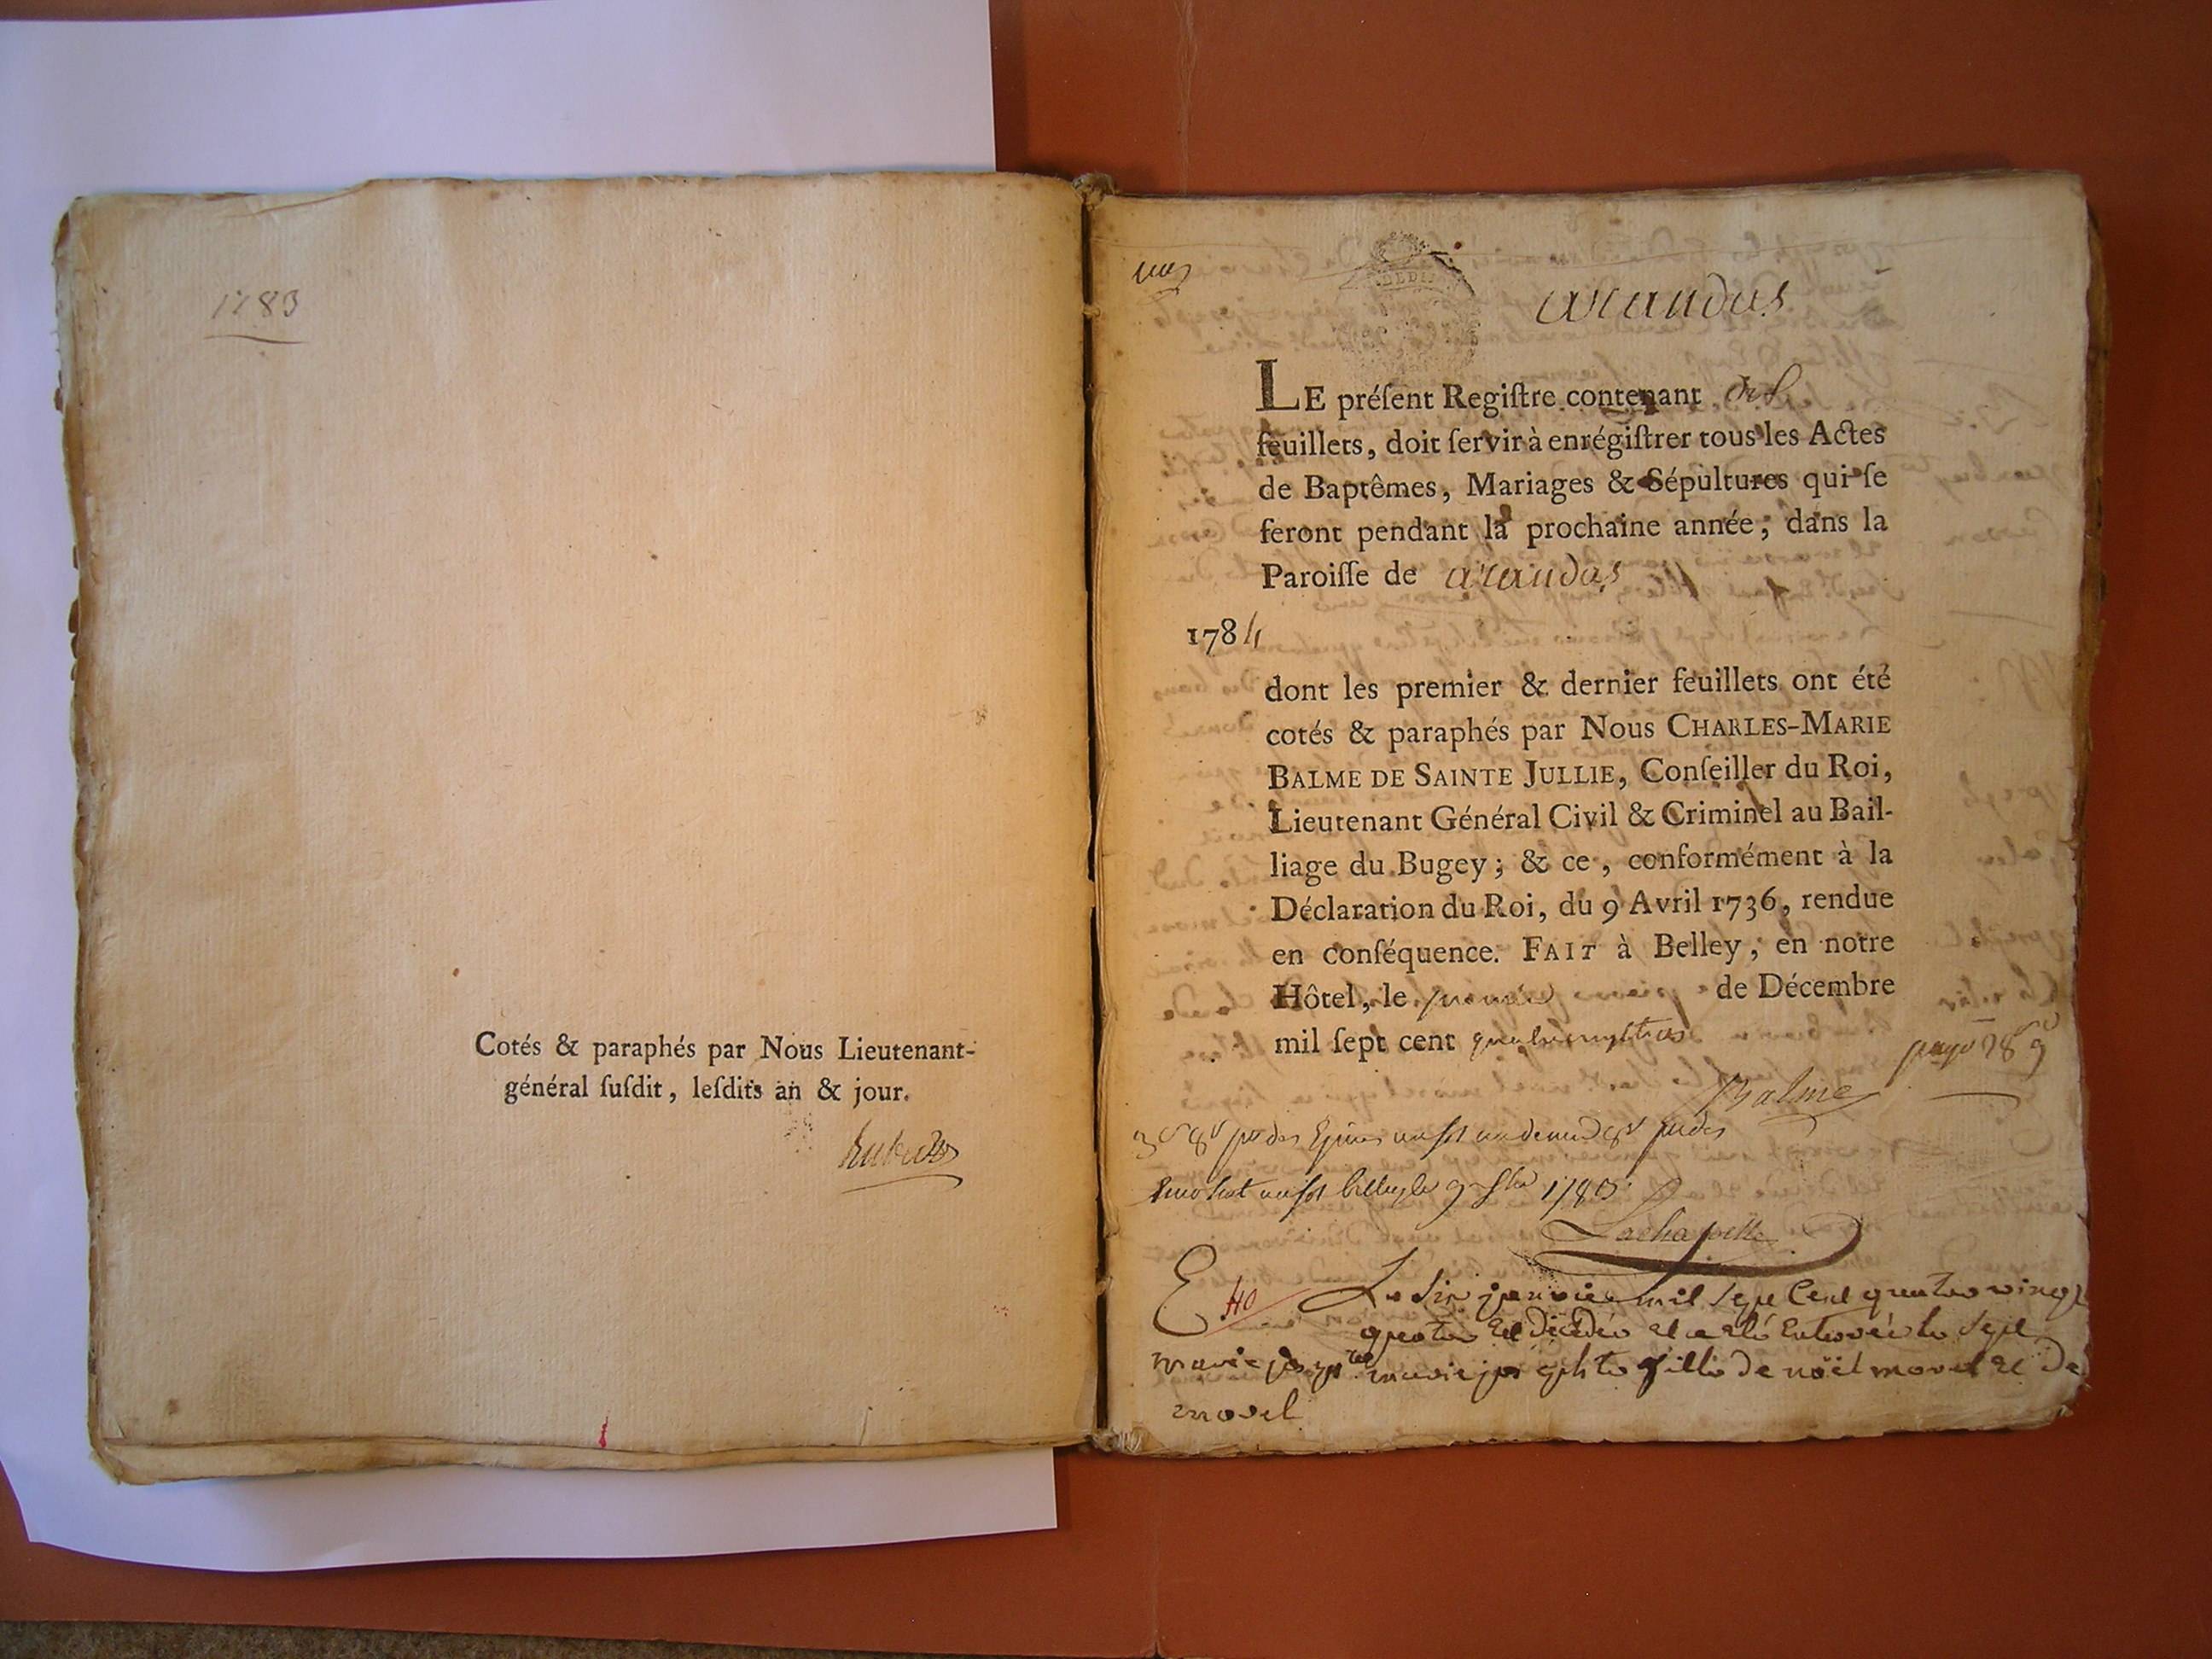 1783
Cotés & paraphés par Nous Lieutenant-
général ſuſdit, leſdits an & jour.
arandas
LE préſent Regiſtre contenant
feuillets, doit ſervir à enrégiſtrer tous les Actes
de Baptêmes, Mariages & Sépultures qui ſe
feront pendant la prochaine année, dans la
Paroiſſe de arandas
1784
dont les premier & dernier feuillets ont été
cotés & paraphés par Nous CHARLES-MARIE
BALME DE SAINTE JULLIE, Conſeiller du Roi,
Lieutenant Général Civil & Criminel au Bail-
liage du Bugey; & ce, conformément à la
Déclaration du Roi, du 9 Avril 1736, rendue
en conſéquence. FAIT à Belley, en notre
Hôtel, le premier de Décembre
mil ſept cent quatre vingt trois
Balme
1783
Lachapelle
E 40 Le six janvier mil sept Cent quatre vingt
quatre est décédée et a été Enterrée le sept
marie josephte fille de noël morel et de
morel